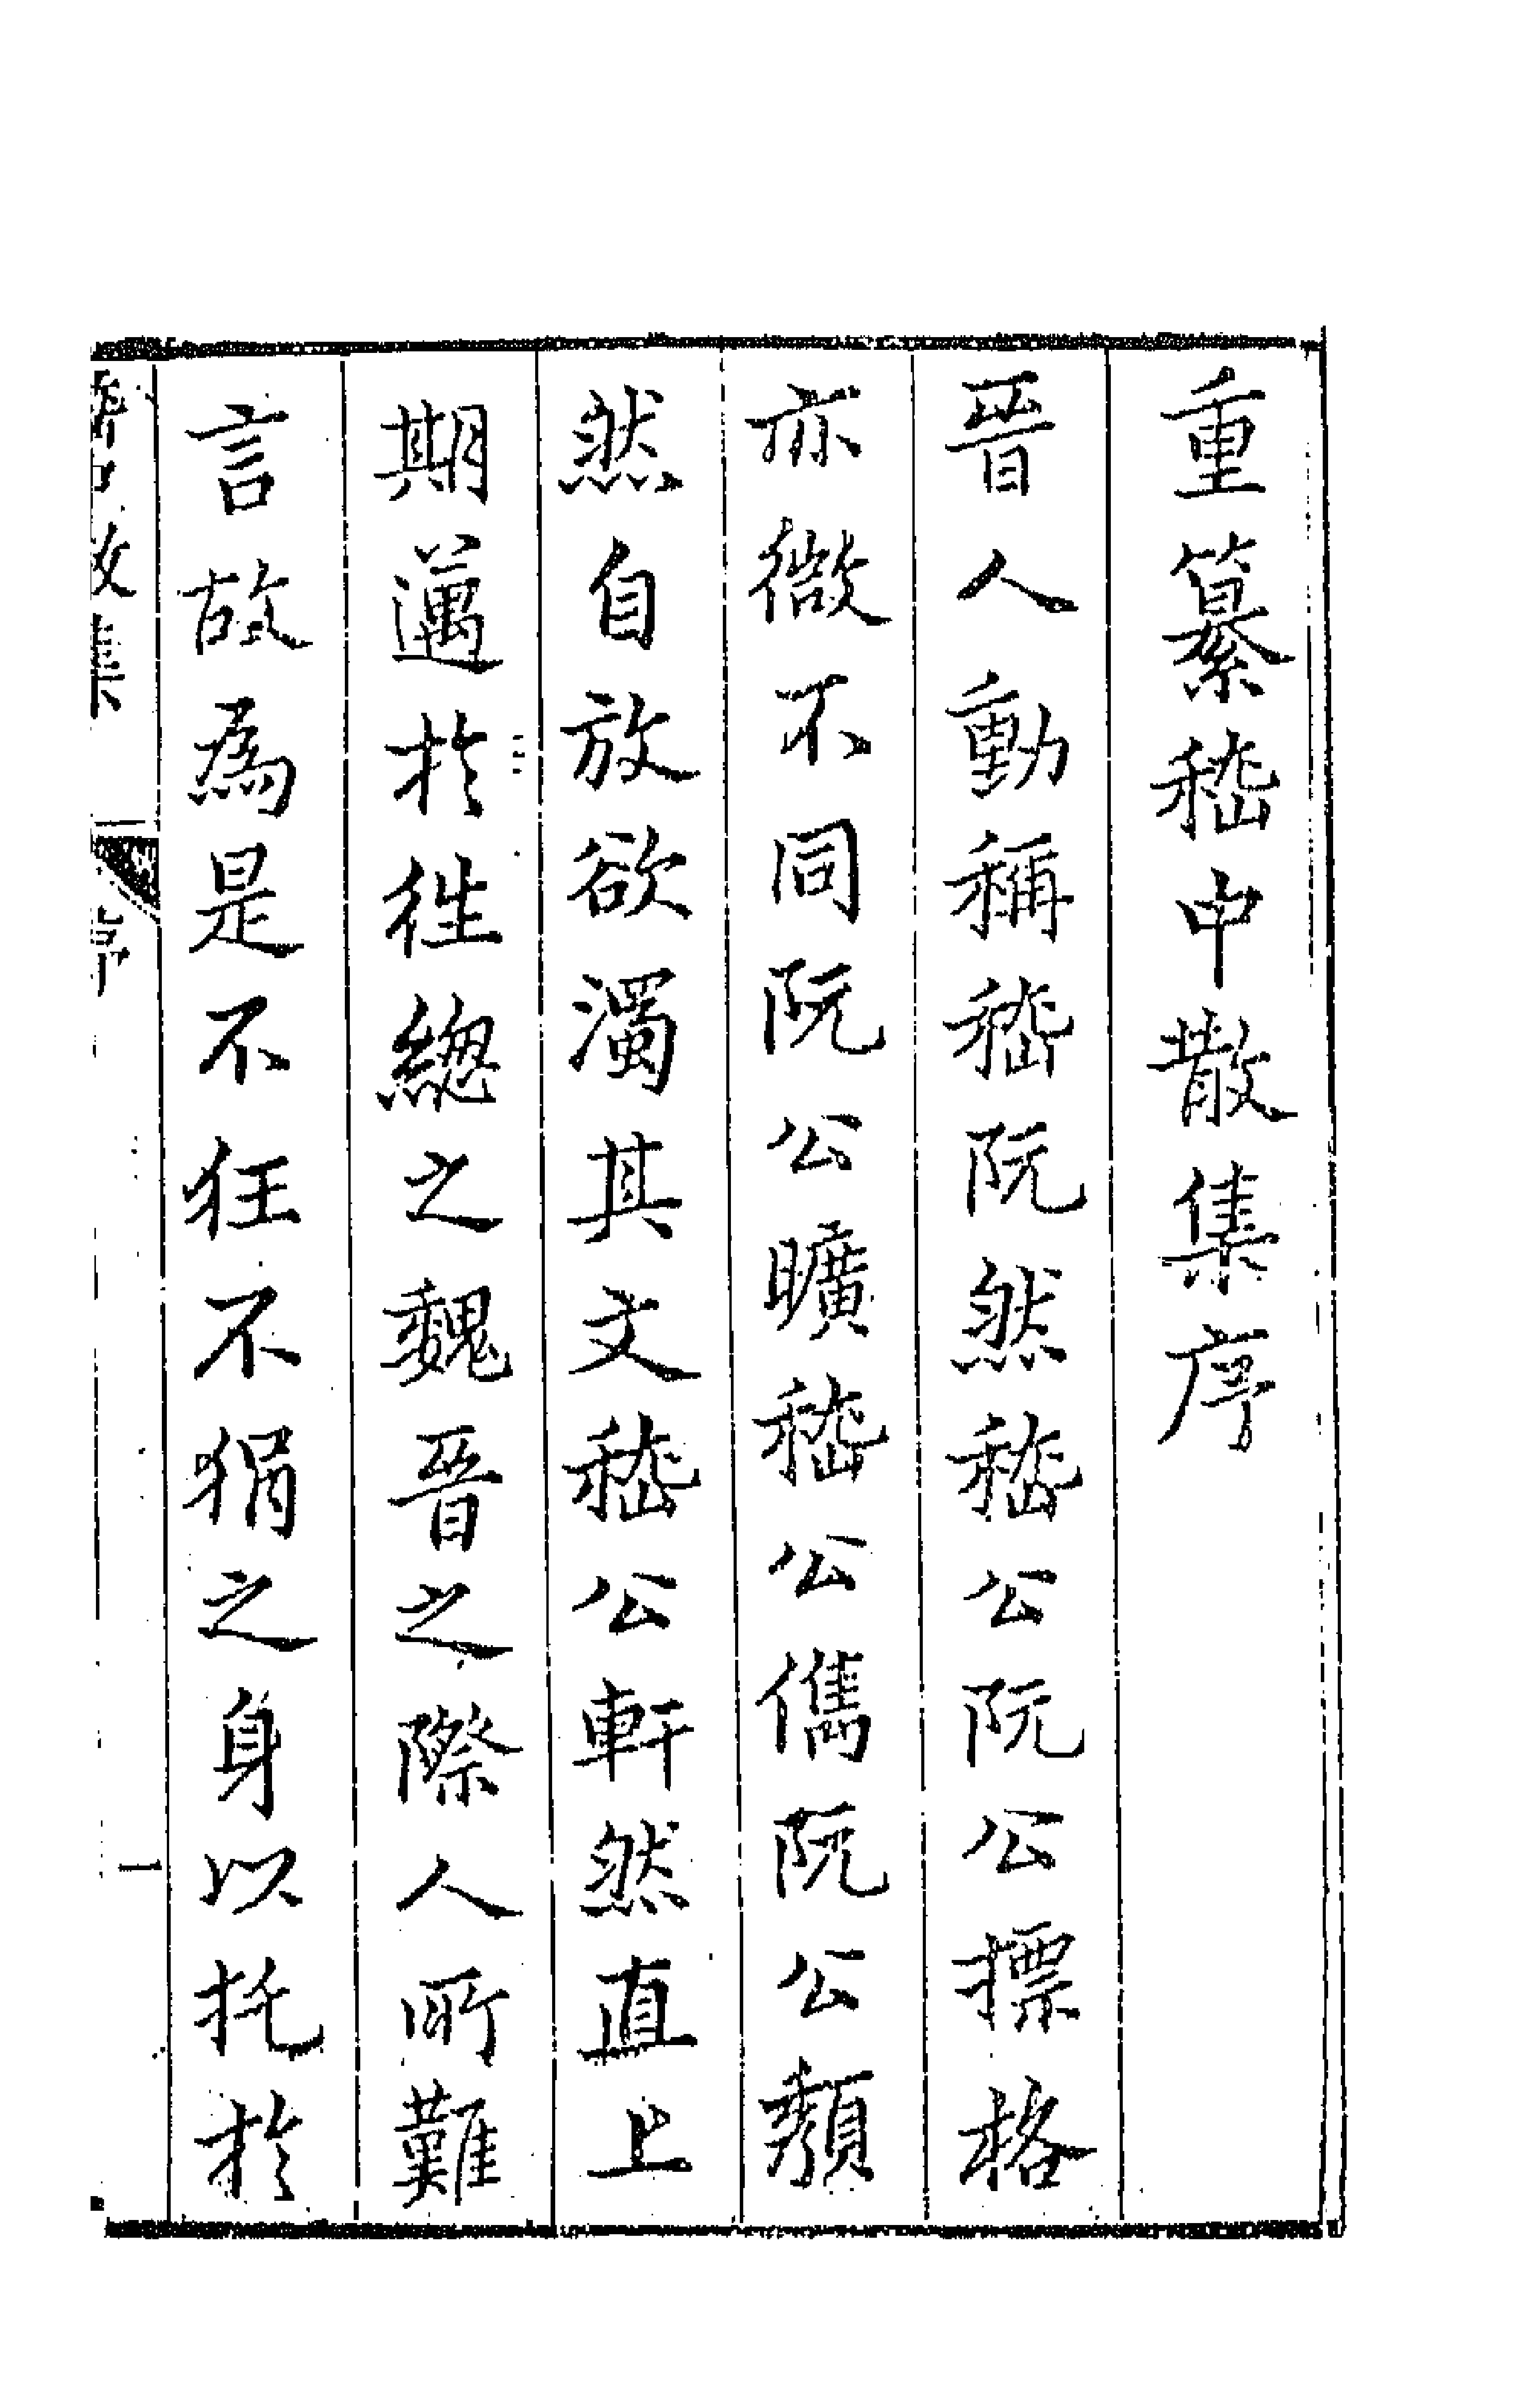 重纂嵇中散集序
晉人動稱嵇阮然嵇公阮公標格
亦微不同阮公曠嵇公儁阮公頽
然自放欲濁其文嵇公軒然直上
期邁於徃總之魏晉之際人所難
言故為是不狂不狷之身以托於
序
一